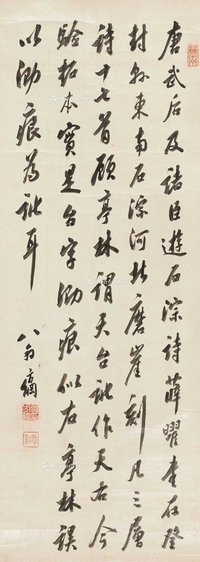 唐武后及諸臣遊石淙詩薛曜書在登
封縣東南石淙河北磨崖刻凡三層
詩十七首顧亭林謂天台訛作天右今
驗拓本實是台字泐痕似右亭林誤
以泐痕為訛耳
翁方綱